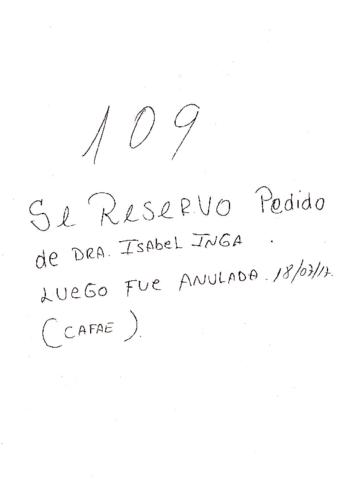 109
Se Reservo Pedido
de DRA. Isabel Inga.
Luego fue anulada. 18/07/17.
(CAFAE).